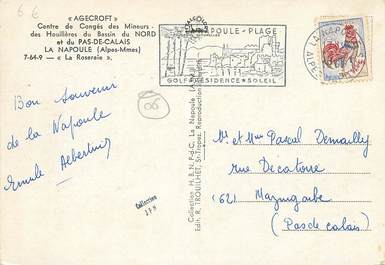 6 €
« AGECROFT »
Centre de Congés des Mineurs
des Houillères du Bassin du NORD
et du PAS-DE-CALAIS
LA NAPOULE (Alpes-Mmes)
7-64-9 — « La Roseraie »
NAPOULE - PLAGE
GOLF RESIDENCE SOLEIL
LA NAPOULE
ALPES
06
Bon Souvenir
de la Napoule
Emile
Collection
Collection H. B. N. P.-d-C. La Napoule
Edit. R. TROUILHET, St-Tropez. Reproduction
Mr et Mme Pascal Demailly
rue Décatoire
(62) Mazingarbe
(Pas de calais)